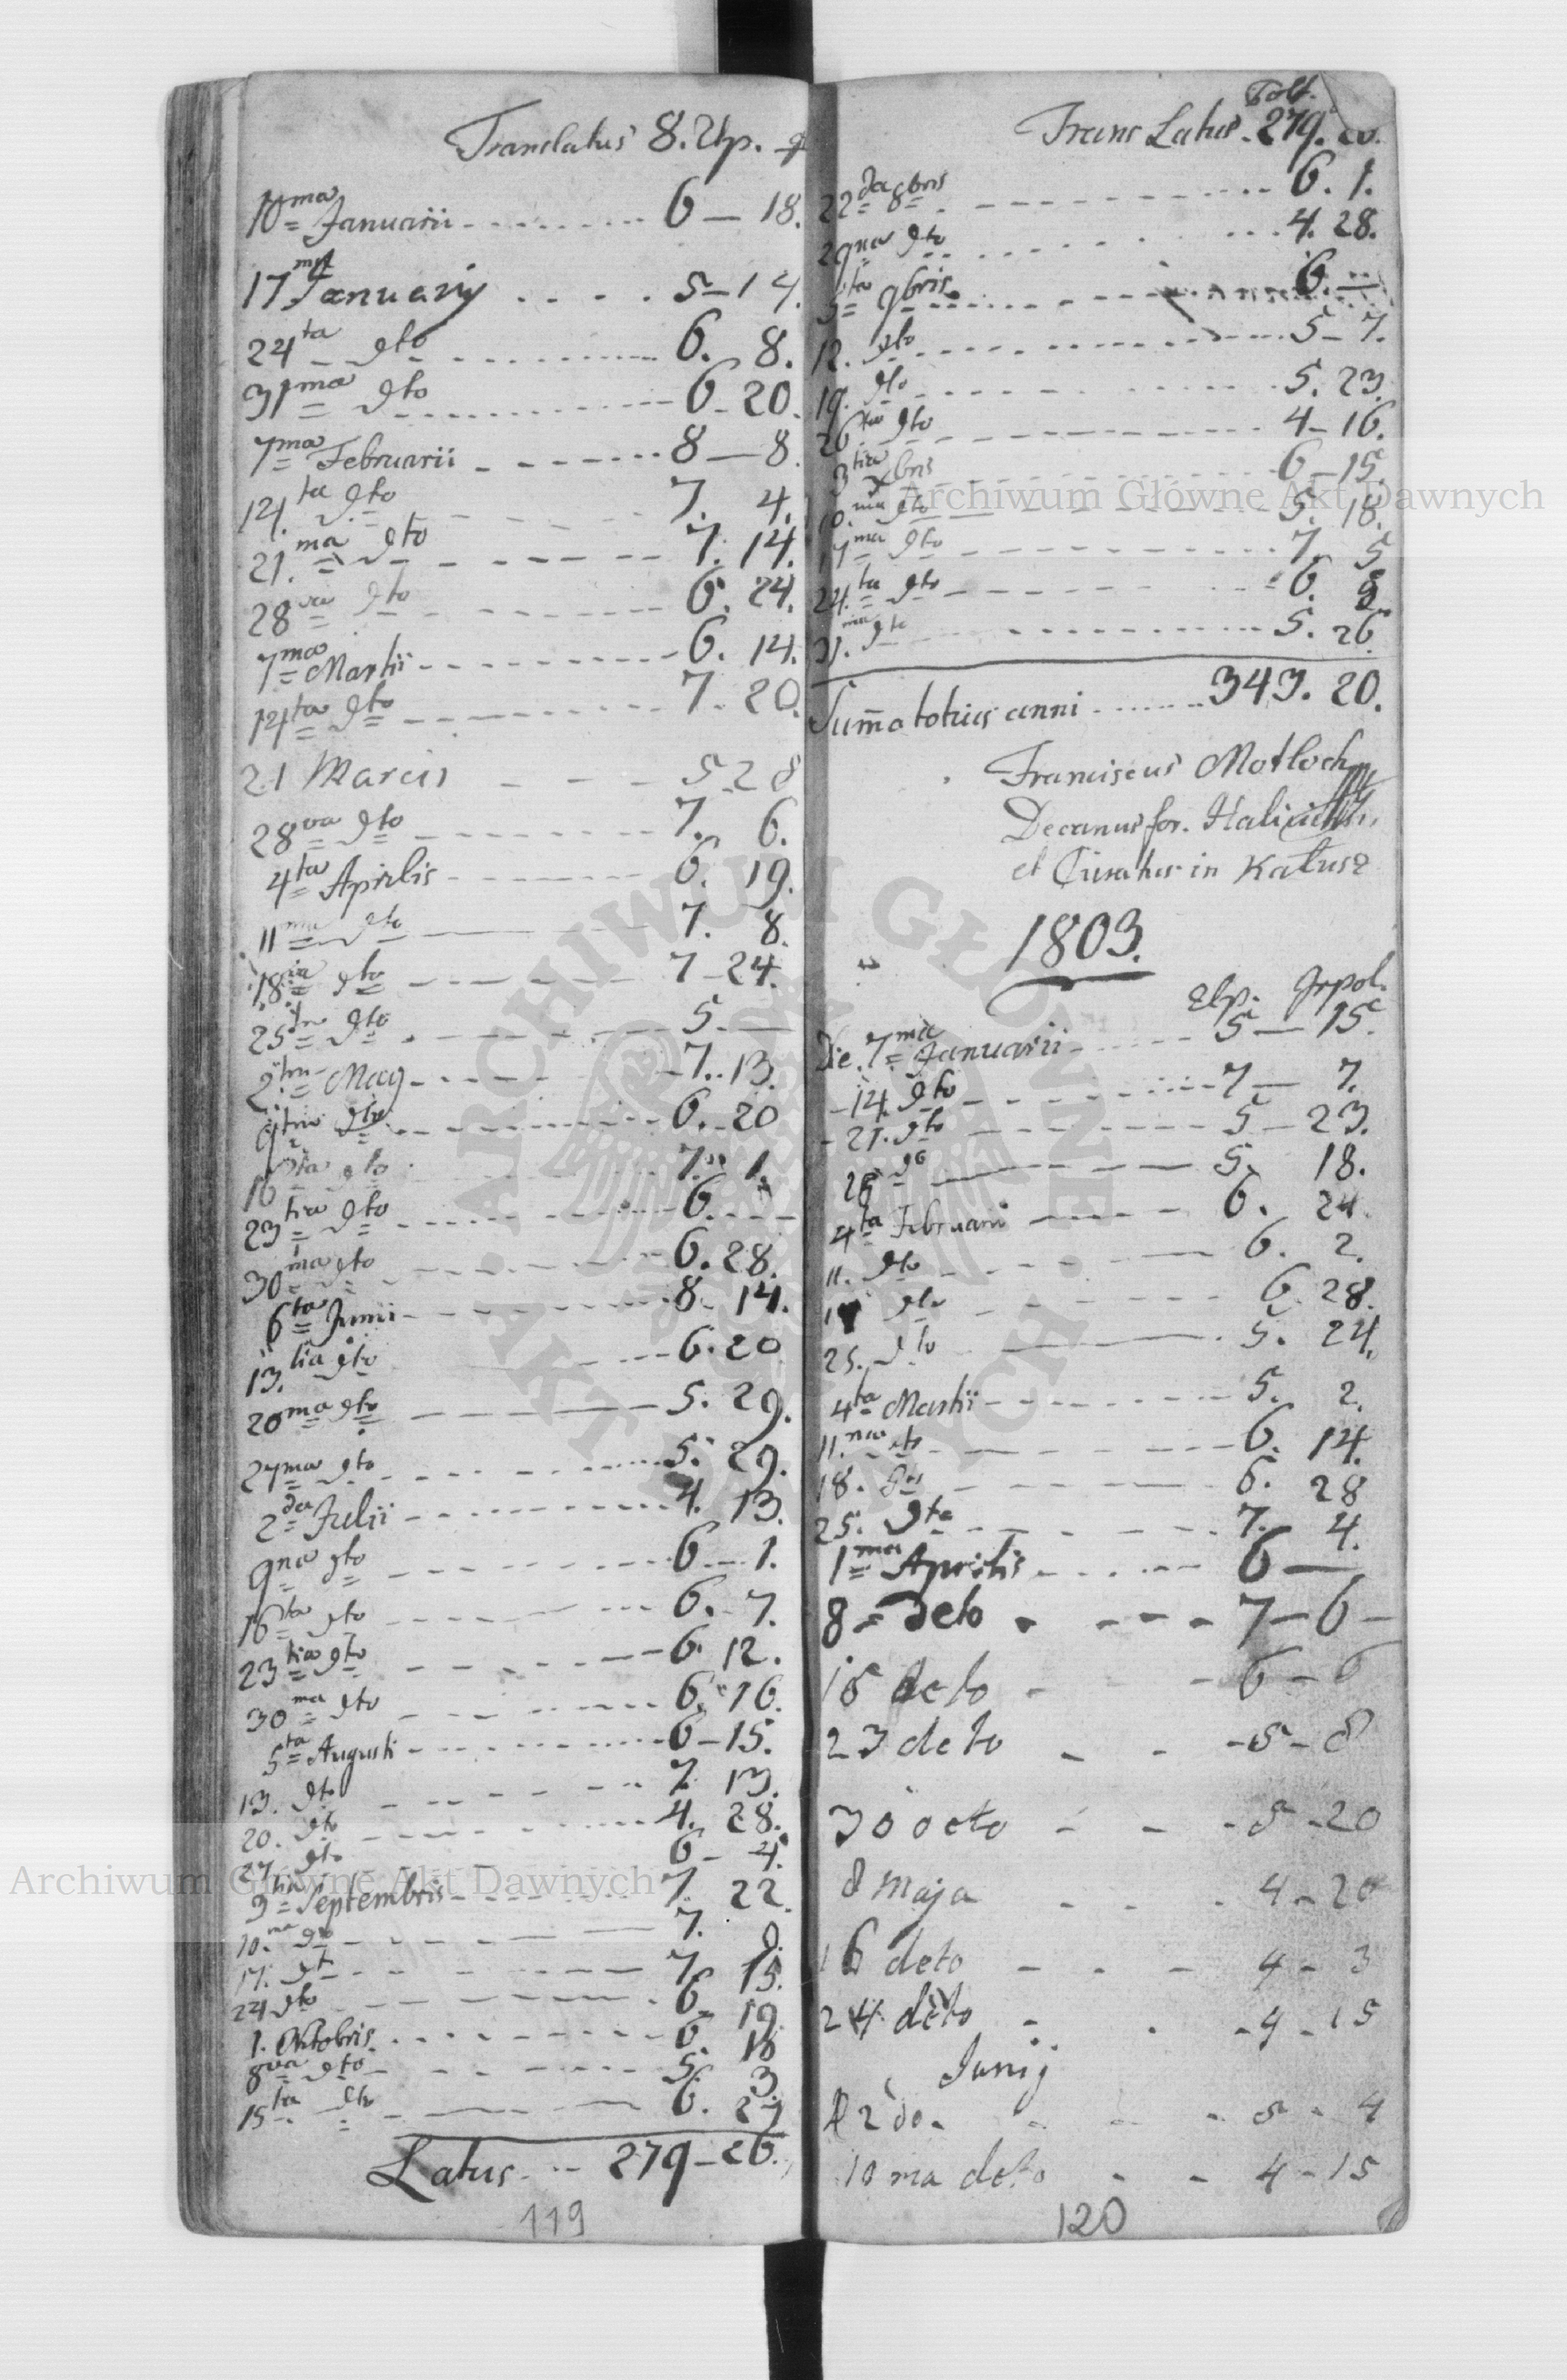 Translatus 8. Złp. 9
10ma Januarii 6 — 18.
17ma January 5 – 14.
24ta dto 6. 8.
31ma dto 6 – 20.
7ma Februarii 8 — 8.
14ta dto 7. 4.
21.ma dto 7. 14.
28va dto 6. 24.
7ma Martii 6. 14.
14ta dto 7. 20.
21 Marcii 5 28
28va dto 7. 6.
4ta Aprilis 6. 19.
11ma dto 7. 8.
18va dto 7 – 24.
25ta dto 5 —
2. May 7. 13.
9 dto 6. 20
16ta dto 7. 1.
23tia dto 6.
30ma dto 6. 28.
6ta Junii 8. 14.
13.tia dto 6. 20
20ma dto 5. 29.
27ma dto 5. 29.
2da Julii 4. 13.
9na dto 6 1.
16ta dto 6. 7.
23tia dto 6. 12.
30ma dto 6. 16.
5ta Augusti 6 – 15.
13. dto 7. 13.
20. dto 4. 28.
27. dto 6 – 4.
3tia Septembris 7. 22.
10.ma dto 7.
17. dt 7. 15.
24 dto 6. 19.
1. Oktobris 6. 18
8va dto 5. 3.
15ta dto 6. 27
Latus 279 – 26.
119
Trans Latus 279.
22da 8bris 6. 1.
29na dto 4. 28.
5ta 9bris 6. —
12. dto 5 – 7.
19. dto 5. 23.
26ta dto 4 – 16.
3tia Xbris 6 – 15.
10.ma dto 5. 18.
17ma dto 7. 5
24.ta dto 6.
31.ma dto 5. 26.
Summa totius anni 343. 20.
Franciscus Motloch
Decanus for.
et Curatus in Kałusz
1803.
Złp. Grpol.
Die 7ma Januarii 5 — 15.
14. dto 7 — 7.
21. dto 5 – 23.
28 dto 5. 18.
4ta Februarii 6. 24.
11. dto 6. 2.
18 dto 6. 28.
25. dto 5. 24.
4ta Martii 5. 2.
11.ma dto 6. 14.
18. dto 6. 28
25. dto 7. 4.
1ma Aprilis 6 —
8 deto 7 – 6 –
15 deto 6 – 6
23 deto 5 – 8
30 deto 5 – 20
8 maja 4 – 20
16 deto 4 – 3
24 deto 4 – 15
Junij
2 do 5 – 4
10 ma deto 4 – 15
120
Archiwum Główne Akt Dawnych
Archiwum Główne Akt Dawnych
ARCHIWUM GŁÓWNE AKT DAWNYCH